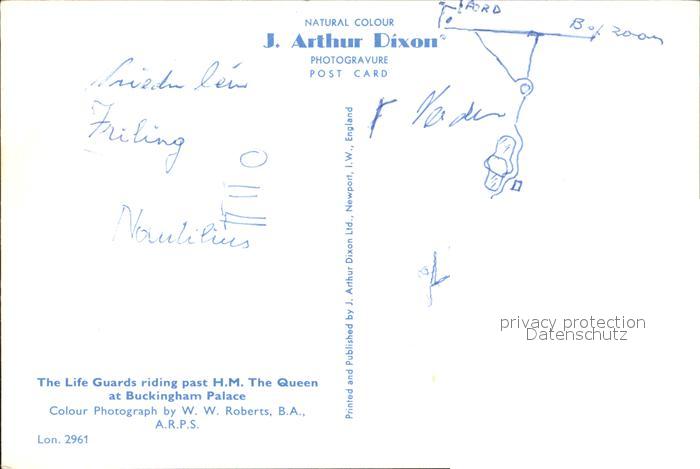 NATURAL COLOUR
J. Arthur Dixon
PHOTOGRAVURE
POST CARD
Friling
Nautilius
Printed and Published by J. Arthur Dixon Ltd., Newport, I.W., England
privacy protection
Datenschutz
The Life Guards riding past H.M. The Queen
at Buckingham Palace
Colour Photograph by W. W. Roberts, B.A.,
A.R.P.S.
Lon. 2961